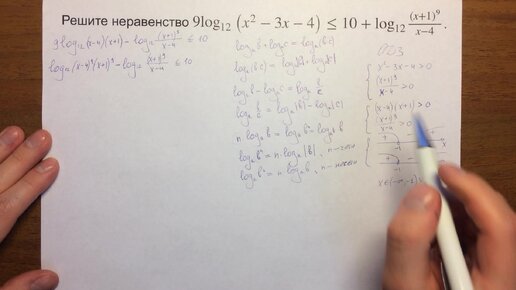 Решите неравенство 9log₁₂ (x² − 3x − 4) ≤ 10 + log₁₂ (x+1)⁹/(x−4).
9 log₁₂ (x-4)(x+1) - log₁₂ (x+1)⁹/(x-4) ≤ 10
log₁₂ (x-4)⁹(x+1)⁹ - log₁₂ (x+1)⁹/(x-4) ≤ 10
logₐ b + logₐ c = logₐ (bc)
logₐ (bc) = logₐ|b| + logₐ|c|
logₐ b - logₐ c = logₐ b/c
logₐ b/c = logₐ |b| - logₐ |c|
n logₐ b = logₐ bⁿ
logₐ bⁿ = n logₐ |b|, n - чётн
logₐ bⁿ = n logₐ b, n - нечётн
ОДЗ
x² - 3x - 4 > 0
(x+1)⁹/(x-4) > 0
(x-4)(x+1) > 0
(x+1)⁹/(x-4) > 0
+ -
-1 x
+ -
-1
x ∈ (-∞; -1)